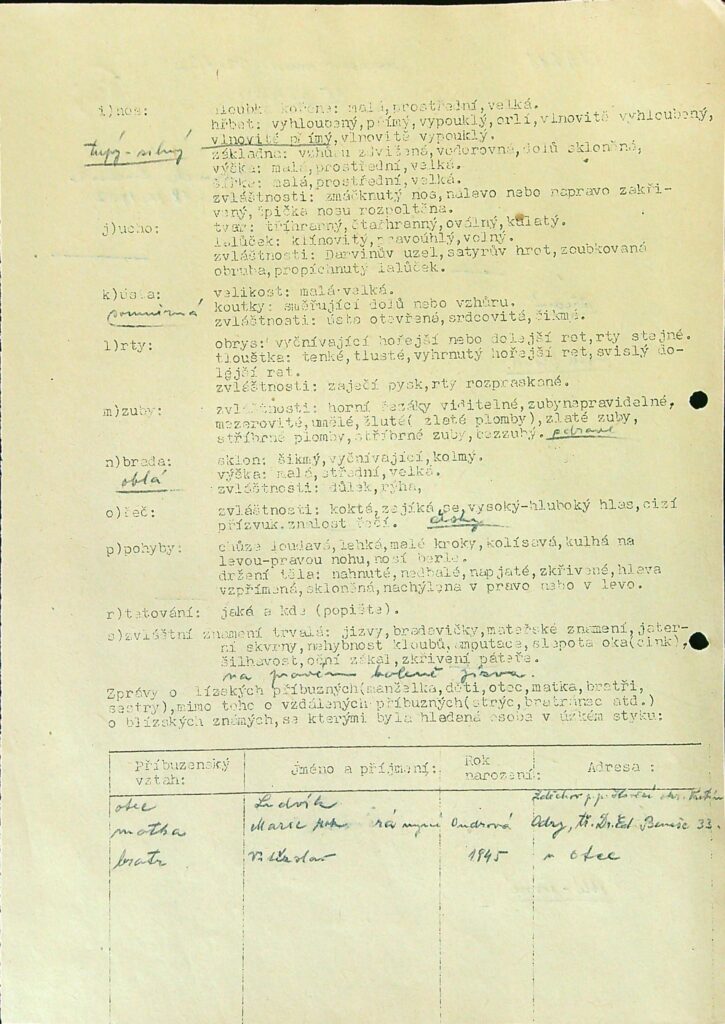 i)nos: hloubka kořene: malá,prostřední,velká.
hřbet: vyhloubený,přímý,vypouklý,orlí,vlnovitě vyhloubený,
vlnovitě přímý,vlnovitě vypouklý.
tupý-silný základna: vzhůru zdvižená,vodorovná,dolů skloněná,
výška: malá,prostřední,velká.
šířka: malá,prostřední,velká.
zvláštnosti: zmáčknutý nos,nalevo nebo napravo zakři-
vený,špička nosu rozpoltěna.
j)ucho: tvar: tříhranný,čtařhranný,oválný,kulatý.
lalůček: klínovitý,pravoúhlý,volný.
zvláštnosti: Darvinův uzel,satyrův hrot,zoubkovaná
obruba,propíchnutý lalůček.
k)ústa: velikost: malá-velká.
souměrná koutky: směřující dolů nebo vzhůru.
zvláštnosti: ústa otevřená,srdcovitá,šikmá.
l)rty: obrys: vyčnívající hořejší nebo dolejší ret,rty stejné.
tlouštka: tenké,tlusté,vyhrnutý hořejší ret,svislý do-
lejší ret.
zvláštnosti: zaječí pysk,rty rozpraskané.
m)zuby: zvláštnosti: horní řezáky viditelné,zubynepravidelné,
mezerovité,umělé,žluté( zlaté plomby),zlaté zuby,
stříbrné plomby,stříbrné zuby,bezzubý. zdravé
n)brada: sklon: šikmý,vyčnívající,kolmý.
oblá výška: malá,střední,velká.
zvláštnosti: důlek,rýha,
o)řeč: zvláštnosti: koktá,zajíká se,vysoký-hluboký hlas,cizí
přízvuk.znalost řečí. česky
p)pohyby: chůze loudavá,lehká,malé kroky,kolísavá,kulhá na
levou-pravou nohu,nosí berle.
držení těla: nahnuté,nedbalé,napjaté,zkřivené,hlava
vzpřímená,skloněná,nachýlena v pravo nebo v levo.
r)tetování: jaká a kde (popište).
s)zvláštní znamení trvalá: jizvy,bradavičky,mateřské znamení,jater-
ní skvrny,nehybnost kloubů,amputace,slepota oka(cink),
šilhavost,oční zákal,zkřivení páteře.
na pravém koleně jizva.
Zprávy o blízských příbuzných(manželka,děti,otec,matka,bratři,
sestry),mimo toho o vzdálených příbuzných(strýc,bratranec atd.)
o blízských známých,se kterými byla hledaná osoba v úzkém styku:
Příbuzenský vztah: Jméno a příjmení: Rok narození: Adresa :
otec Ludvík
matka Marie nyní Ondrová Odry, tř. Dr. Ed. Beneše 33.
bratr Vítězslav 1945 u otce